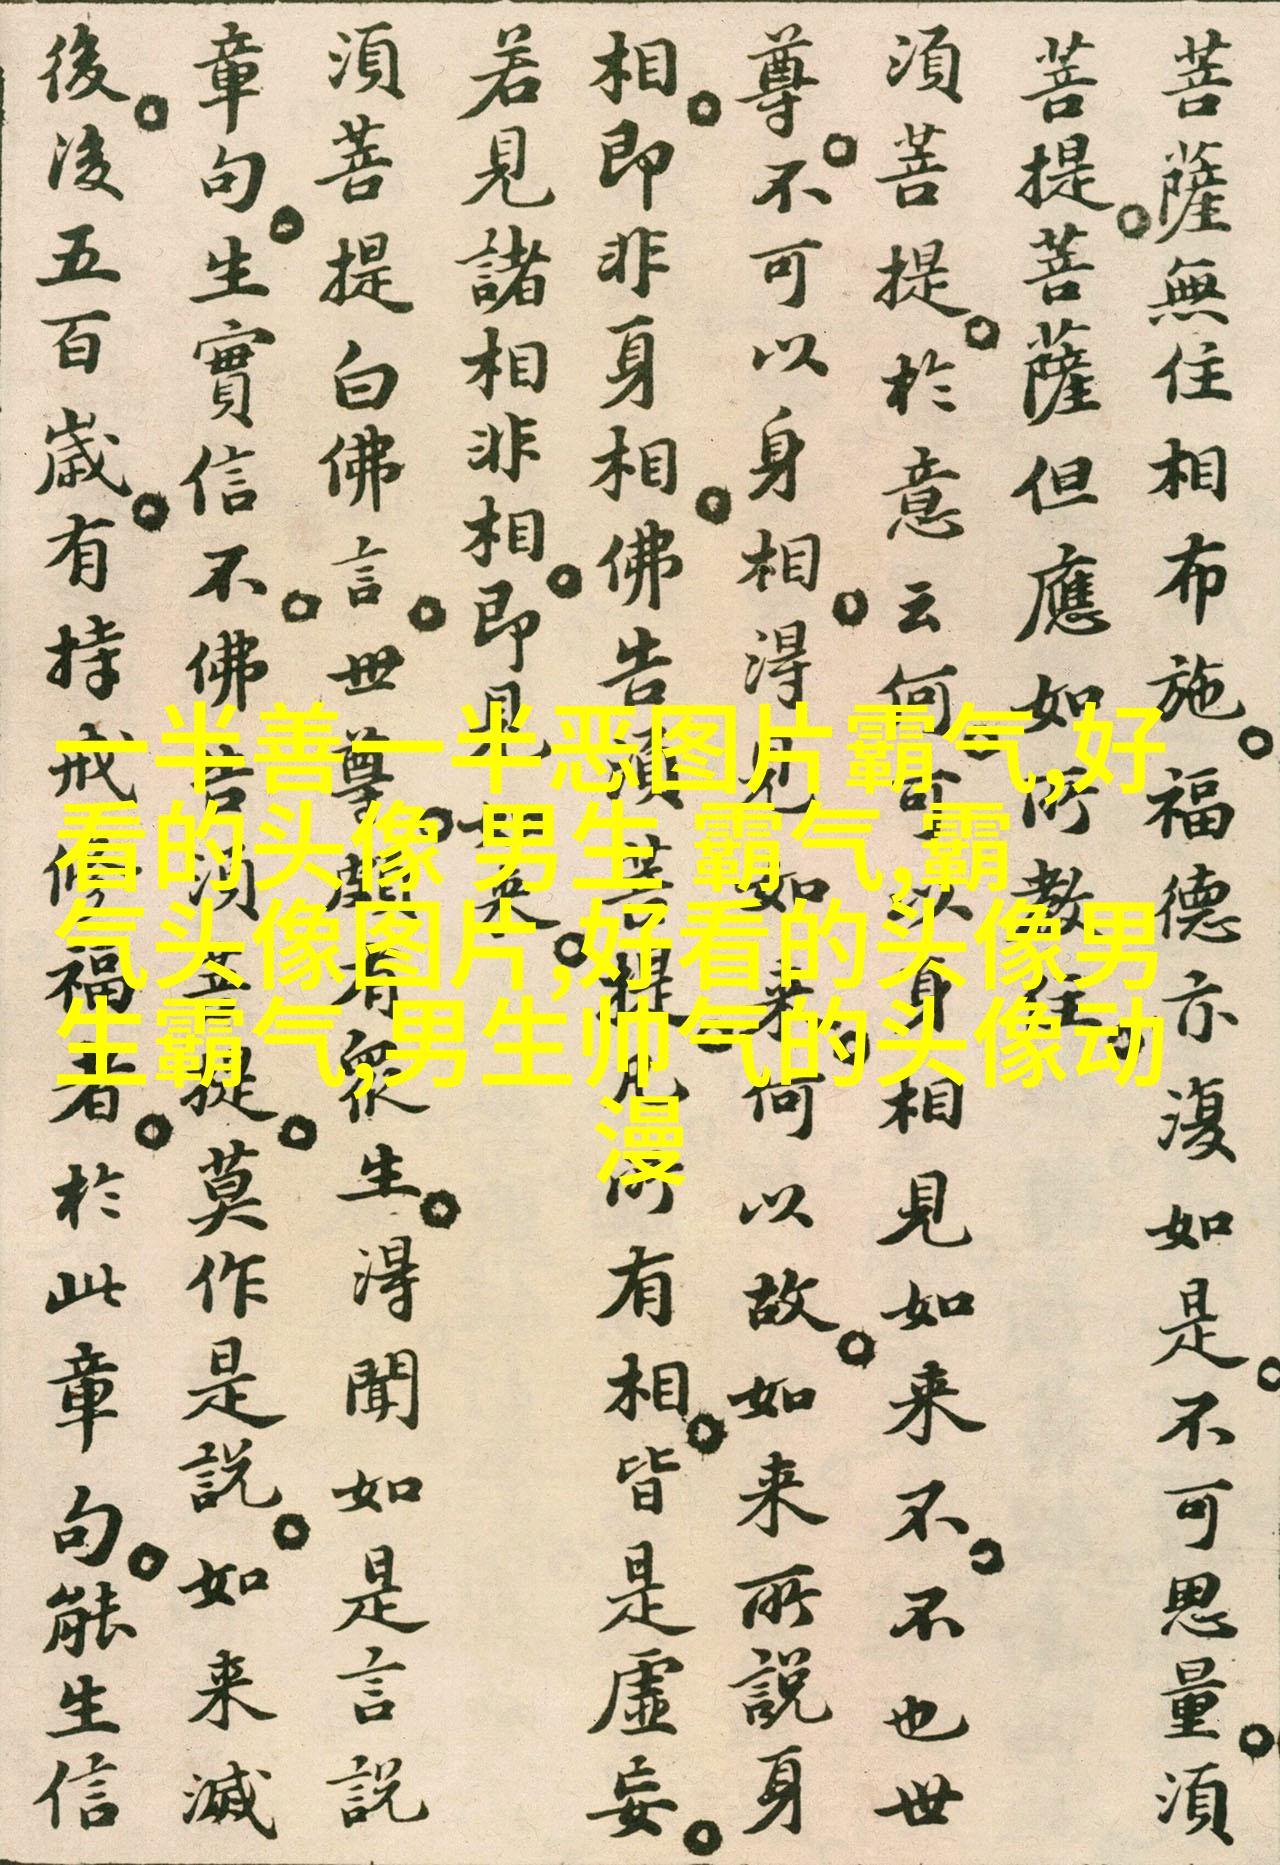 菩薩無住相布施。福德亦復如是。不可思量。須
菩提。菩薩但應如所教住。
須菩提。於意云何。可以身相見如来不。不也世
尊。不可以身相。得見如来。何以故。如来所說身
相。即非身相。佛告須菩提。凡所有相。皆是虛妄。
若見諸相非相。即見如来。
須菩提白佛言。世尊。頗有眾生。得聞如是言說
章句。生實信不。佛告須菩提。莫作是說。如来滅
後。後五百歲。有持戒修福者。於此章句。能生信
一半善一半恶图片霸气,好
看的头像 男生 霸气,霸
气头像图片,好看的头像男
生霸气,男生帅气的头像动
漫